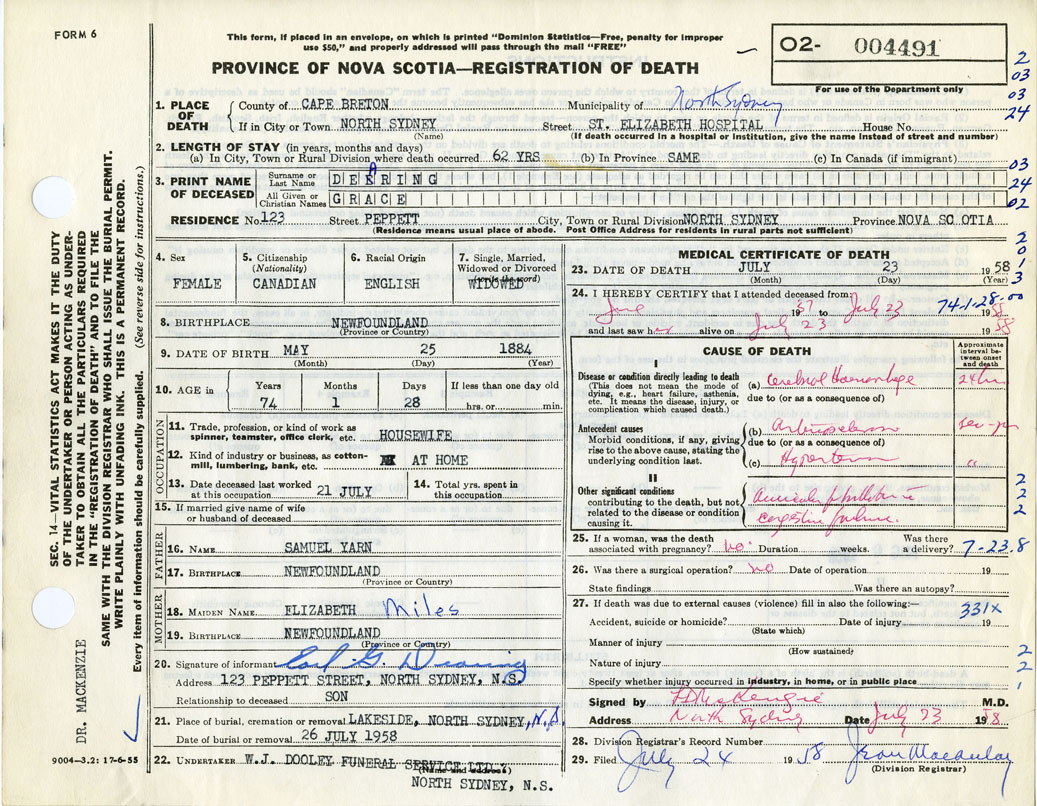 FORM 6
This form, if placed in an envelope, on which is printed "Dominion Statistics—Free, penalty for improper
use $50," and properly addressed will pass through the mail "FREE"
PROVINCE OF NOVA SCOTIA—REGISTRATION OF DEATH
02- 004491
For use of the Department only
2
03
03
24
03
24
02
2
0
1
3
1. PLACE OF DEATH
County of CAPE BRETON Municipality of North Sydney
If in City or Town NORTH SYDNEY Street ST. ELIZABETH HOSPITAL House No.
(Name) (If death occurred in a hospital or institution, give the name instead of street and number)
2. LENGTH OF STAY (in years, months and days)
(a) In City, Town or Rural Division where death occurred 62 YRS (b) In Province SAME (c) In Canada (if immigrant)
3. PRINT NAME OF DECEASED
Surname or Last Name DEERING A
All Given or Christian Names GRACE
RESIDENCE No. 123 Street PEPPETT City, Town or Rural Division NORTH SYDNEY Province NOVA SCOTIA
(Residence means usual place of abode. Post Office Address for residents in rural parts not sufficient)
4. Sex
FEMALE
5. Citizenship
(Nationality)
CANADIAN
6. Racial Origin
ENGLISH
7. Single, Married,
Widowed or Divorced
(write the word)
WIDOWED
8. BIRTHPLACE NEWFOUNDLAND
(Province or Country)
9. DATE OF BIRTH MAY 25 1884
(Month) (Day) (Year)
10. AGE in
Years Months Days If less than one day old
74 1 28 hrs. or min.
OCCUPATION
11. Trade, profession or kind of work as
spinner, teamster, office clerk, etc. HOUSEWIFE
12. Kind of industry or business, as cotton-
mill, lumbering, bank, etc. AT HOME
13. Date deceased last worked
at this occupation 21 JULY
14. Total yrs. spent in
this occupation
15. If married give name of wife
or husband of deceased
FATHER
16. NAME SAMUEL YARN
17. BIRTHPLACE NEWFOUNDLAND
(Province or Country)
MOTHER
18. MAIDEN NAME ELIZABETH Miles
19. BIRTHPLACE NEWFOUNDLAND
(Province or Country)
20. Signature of informant Earl G. Dearing
Address 123 PEPPETT STREET, NORTH SYDNEY, N.S.
Relationship to deceased SON
21. Place of burial, cremation or removal LAKESIDE, NORTH SYDNEY, N.S.
Date of burial or removal 26 JULY 1958
22. UNDERTAKER W.J. DOOLEY FUNERAL SERVICE LTD.
(Name and address)
NORTH SYDNEY, N.S.
MEDICAL CERTIFICATE OF DEATH
23. DATE OF DEATH JULY 23 1958
(Month) (Day) (Year)
24. I HEREBY CERTIFY that I attended deceased from: 74-1-28-00
June 1957 to July 23 1958
and last saw her alive on July 23 1958
CAUSE OF DEATH
Approximate
interval be-
tween onset
and death
I
Disease or condition directly leading to death
(This does not mean the mode of
dying, e.g., heart failure, asthenia,
etc. It means the disease, injury, or
complication which caused death.)
(a) Cerebral Haemorrhage 24 hrs
due to (or as a consequence of)
Antecedent causes
Morbid conditions, if any, giving
rise to the above cause, stating the
underlying condition last.
(b)
due to (or as a consequence of)
(c) "
II
Other significant conditions
contributing to the death, but not
related to the disease or condition
causing it.
Auricular fibrillation
congestive failure.
2
2
2
25. If a woman, was the death
associated with pregnancy? no. Duration weeks.
Was there
a delivery? 7-23.8
26. Was there a surgical operation? no Date of operation 19
State findings Was there an autopsy?
27. If death was due to external causes (violence) fill in also the following:— 331x
Accident, suicide or homicide? Date of injury 19
(State which)
Manner of injury
(How sustained)
2
Nature of injury
2
Specify whether injury occurred in industry, in home, or in public place
1
Signed by McKenzie M.D.
Address North Sydney Date July 23 1958
28. Division Registrar's Record Number
29. Filed July 24 1958 Jean Macaulay
(Division Registrar)
SEC. 14—VITAL STATISTICS ACT MAKES IT THE DUTY
OF THE UNDERTAKER OR PERSON ACTING AS UNDER-
TAKER TO OBTAIN ALL THE PARTICULARS REQUIRED
IN THE "REGISTRATION OF DEATH" AND TO FILE THE
SAME WITH THE DIVISION REGISTRAR WHO SHALL ISSUE THE BURIAL PERMIT.
WRITE PLAINLY WITH UNFADING INK. THIS IS A PERMANENT RECORD.
Every item of information should be carefully supplied. (See reverse side for instructions.)
DR. MACKENZIE
9004-3.2: 17-6-55